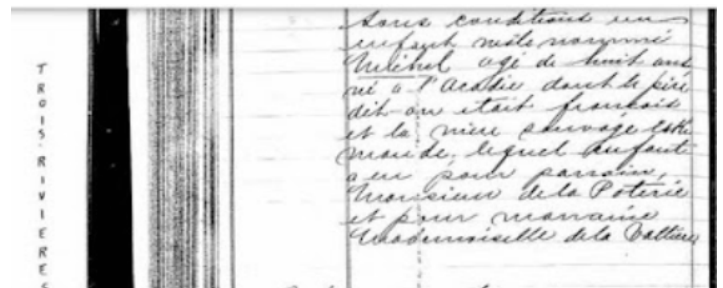 TROIS-RIVIERES
sous conditions un
enfant métis nommé
Michel agé de huit ans
né a l'Acadie dont le père
dit-on était francais
et la mère sauvage eski
maude, lequel enfant
a eu pour parrain,
Monsieur de la Poterie
et pour marraine
Mademoiselle de la Vallière